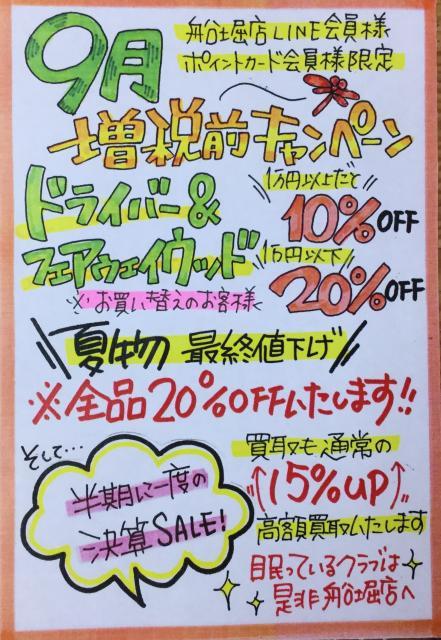 9月
船堀店LINE会員様
ポイントカード会員様限定
増税前キャンペーン
ドライバー&
フェアウェイウッド
※お買い替えのお客様
1万円以上だと
10%OFF
1万円以下
20%OFF
夏物 最終値下げ
※全品20%OFFいたします!!
そして…
半期に一度の
決算SALE!
買取も通常の
15%UP
高額買取いたします
眠っているクラブは
是非船堀店へ